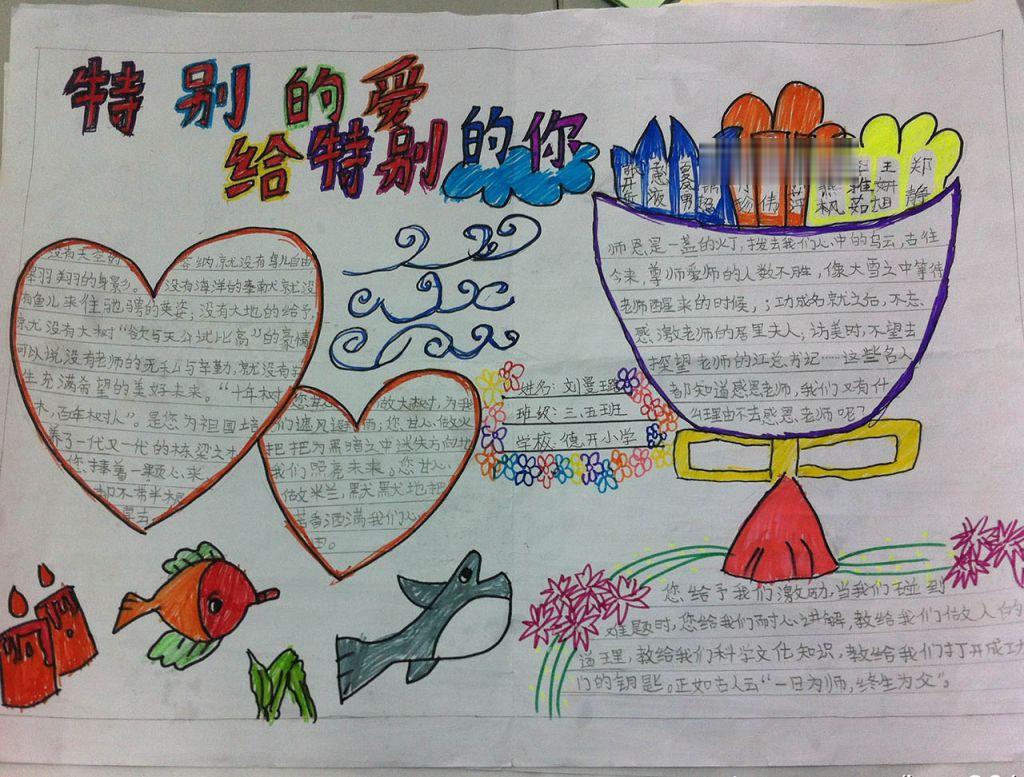 特别的爱
给特别的你
没有天空的容纳,就没有鸟儿自由
翔羽翔的身影。没有海洋的奉献就没
有鱼儿来往驰骋的英姿;没有大地的给予
就没有大树“欲与天公试比高”的豪情
可以说,没有老师的无私与辛勤,就没有学
生充满希望的美好未来。“十年树
木,百年树人”。是您为祖国培
养了一代又一代的栋梁之才
你捧着一颗心来,
却不带半根
草去
您甘做大树,为我
们遮风避雨;您甘心做火
把把为黑暗之中迷失方向
我们照亮未来。您甘心
做米兰,默默地把
芳香洒满我们心
田。
姓名:刘曼
班级:三.五班
学校:德开小学
王 郑
雅 妍 静
枫 茹
师恩是一盏的灯,拨去我们心中的乌云,古往
今来,尊师爱师的人数不胜,像大雪之中等待
老师醒来的时候,;功成名就之后,不忘
感激老师的居里夫人,访美时,不望去
探望老师的江总书记……这些名人
都知道感恩老师,我们又有什
么理由不去感恩老师呢?
您给予我们激励,当我们碰到
难题时,您给我们耐心讲解,教给我们做人的
道理,教给我们科学文化知识,教给我们打开成功
门的钥匙。正如古人云“一日为师,终生为父”。